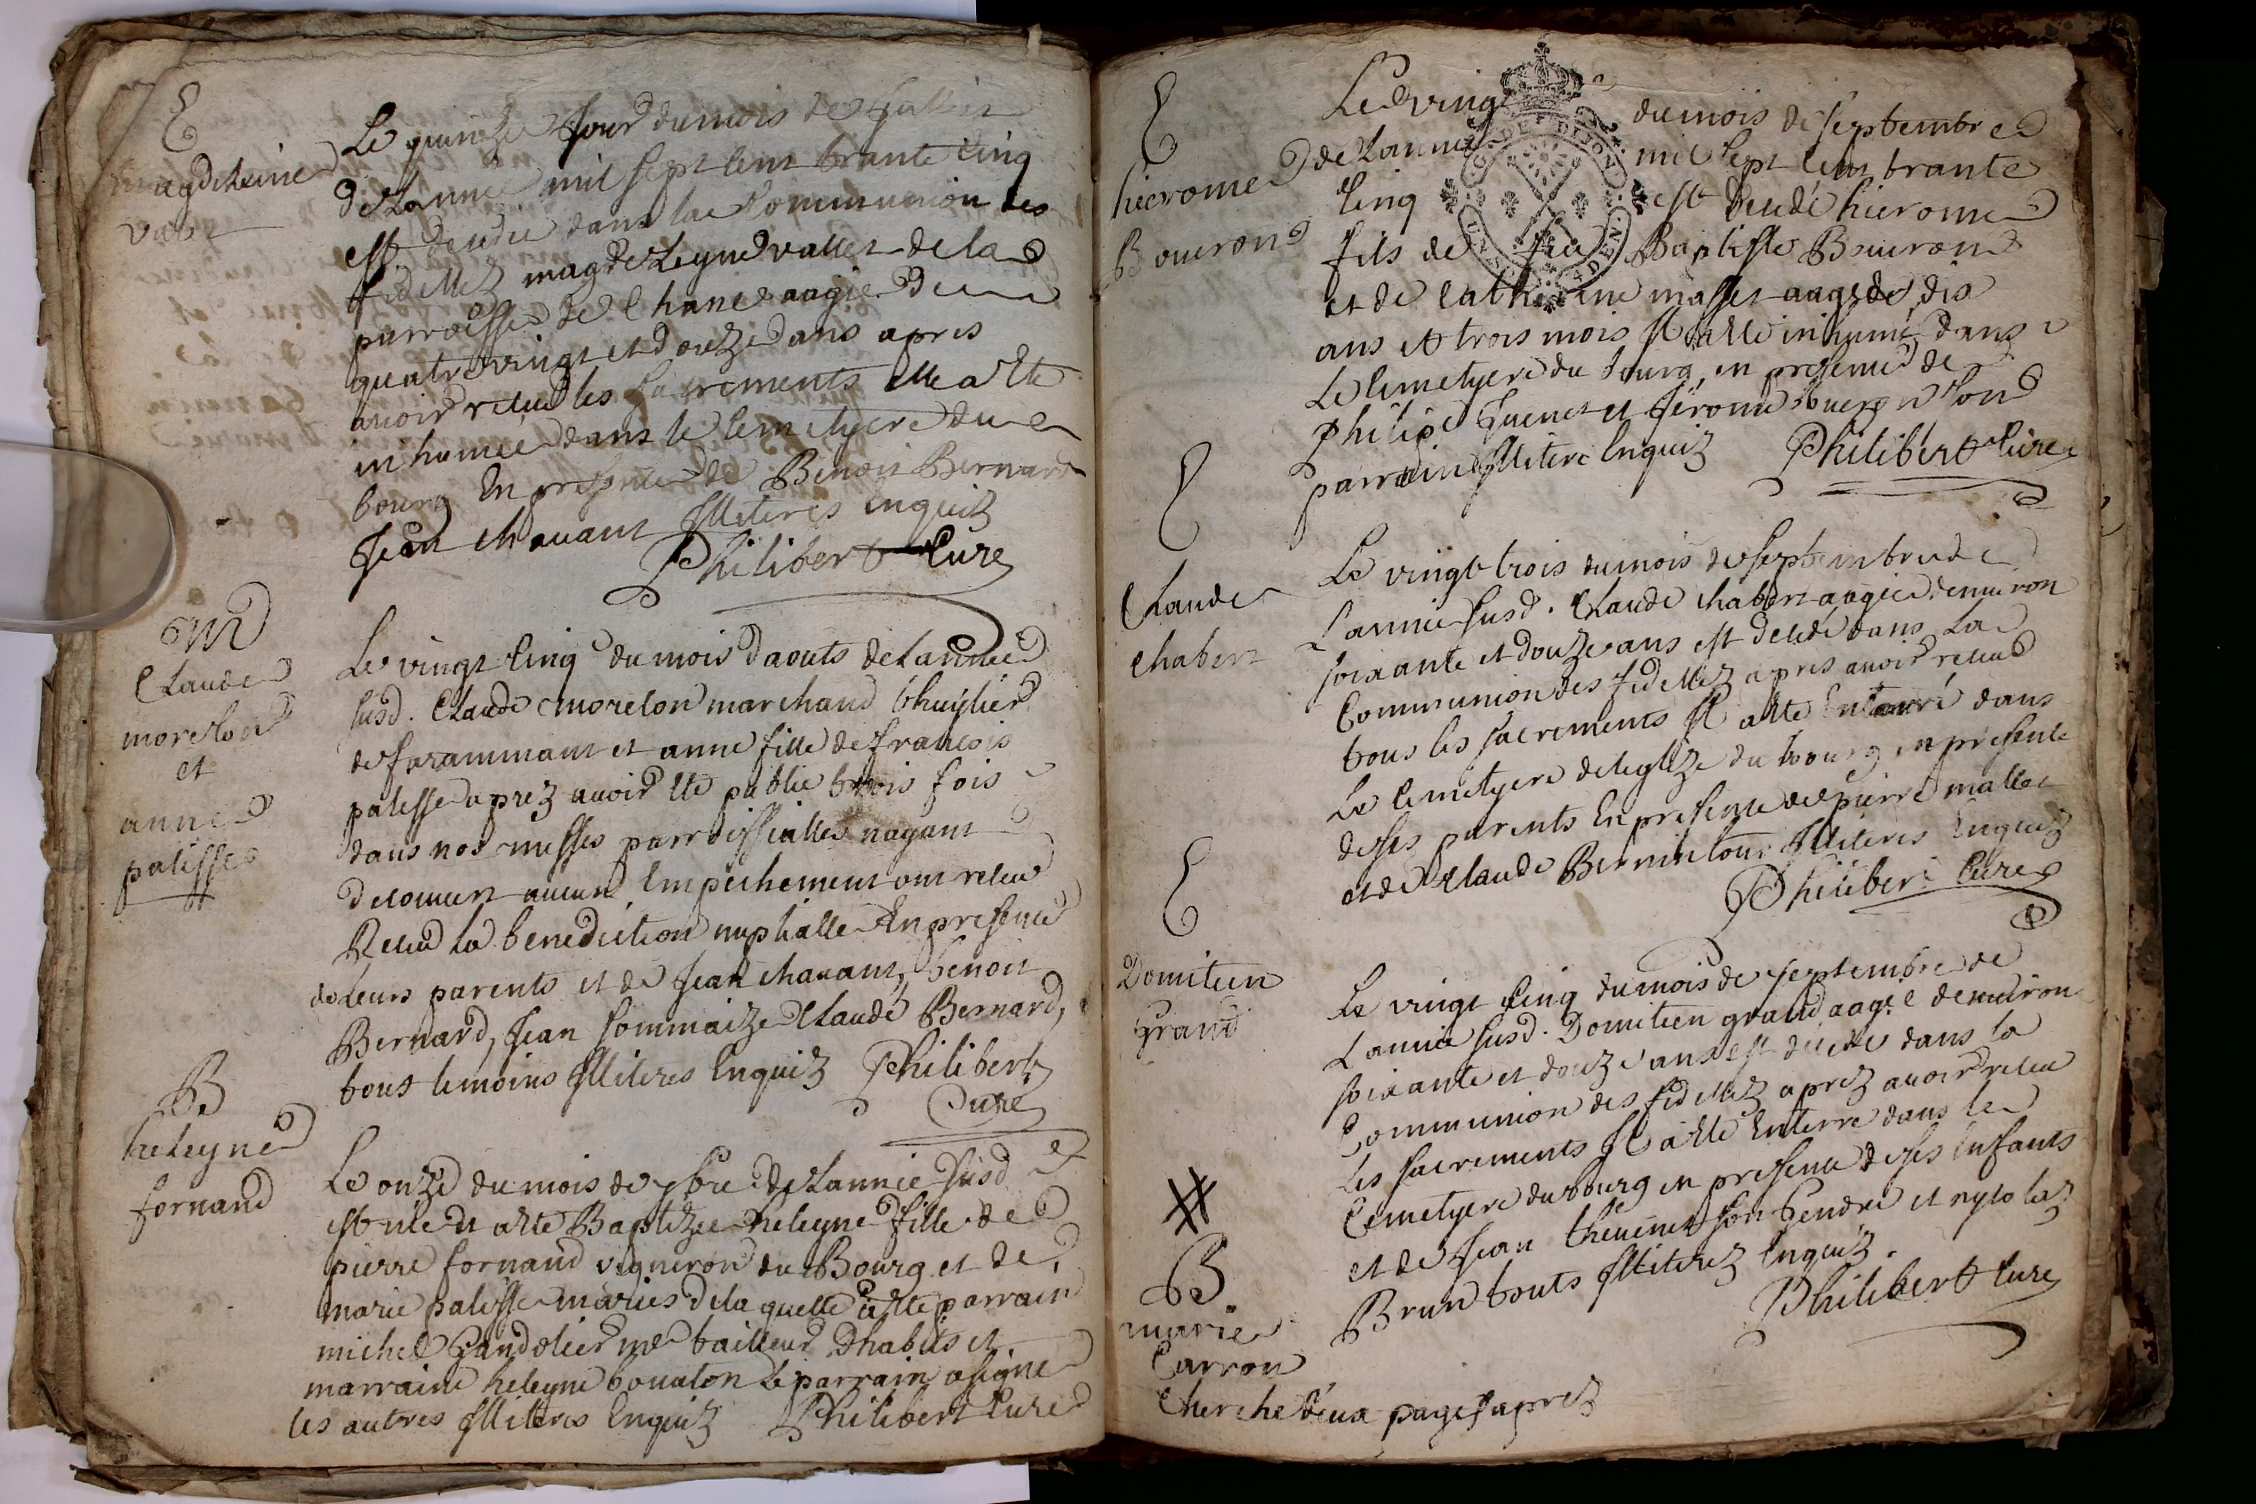 E
magdeleine
Le quinze Jour du mois de Juillet
de Lannee mil sept cent trante cinq
est decedee dans la Communion des
fidellez magdeleyne vallet de la
parroisse de Chane aagée de
quatre vingt et douze ans apres
avoir receu les sacrements elle a ete
inhumée dans le Cemetyere du
bourg En presence de Benoit Bernard
Jean chavant Illiteres Enquiz
Philibert Cure
M
Claude
morelon
et
anne
palisse
Le vingt cinq du mois daouts de Lannée
susd. Claude morelon marchand thuylier
de farammant et anne fille de francois
palisse aprez avoir ete publie trois fois
dans nos messes parroissialles nayant
decouvert aucun Empechement ont receu
Receu La benediction nuptialle En presence
de Leurs parents et de Jean chavant, benoit
Bernard, Jean sommaize Claude Bernard,
tous temoins Illiteres Enquiz Philibert
Cure
B
heleyne
fornand
Le onze du mois de 9bre de Lannee susd
est née et a ete Baptizee heleyne fille de
pierre fornand vigneron du Bourg et de
marie palisse mariés de la quelle a ete parrain
michel Gandelier me tailleur Dhabits et
marraine heleyne bouaton Le parrain a signe
les autres Illiteres Enquiz Philibert Cure
E
hierome
Bouron
Le ving du mois de septembre
de Lannee mil sept cent trante
cinq est decedé hierome
fils de feu Baptiste Bouron
et de catherine masset aagé de dix
ans et trois mois Il a ete inhumé dans
Le Cemetyere du bourg, en presence de
Philipe Juenet et Jérome bueron son
parrain Illitere Enquiz Philibert Cure
E
Claude
chabert
Le vingt trois du mois de septembre de
Lannee susd. Claude chabert aagée denviron
soixante et douze ans est decedé dans La
Communion des fidellez apres avoir receud
tous les sacrements Il a ete Enterré dans
Le Cemetyere de leglize du bourg en presente
de ses parents En presente de pierre mallet
et de Claude Bernin tous Illiteres Enquiz
Philibert Cure
E
Domitien
Grand
Le vingt cinq du mois de septembre de
Lannee susd. Domitien grand aagée denviron
soixante et douze ans est decede dans la
Communion des fidellez aprez avoir receu
les sacrements Il a ete Enterre dans le
Cemetyere du bourg en presence de ses Enfants
et de Jean thevenet son Gendre et nycolas
Brun touts Illiterez Enquiz.
Philibert Cure
B
marie
Carron
cherche deux pages aprez